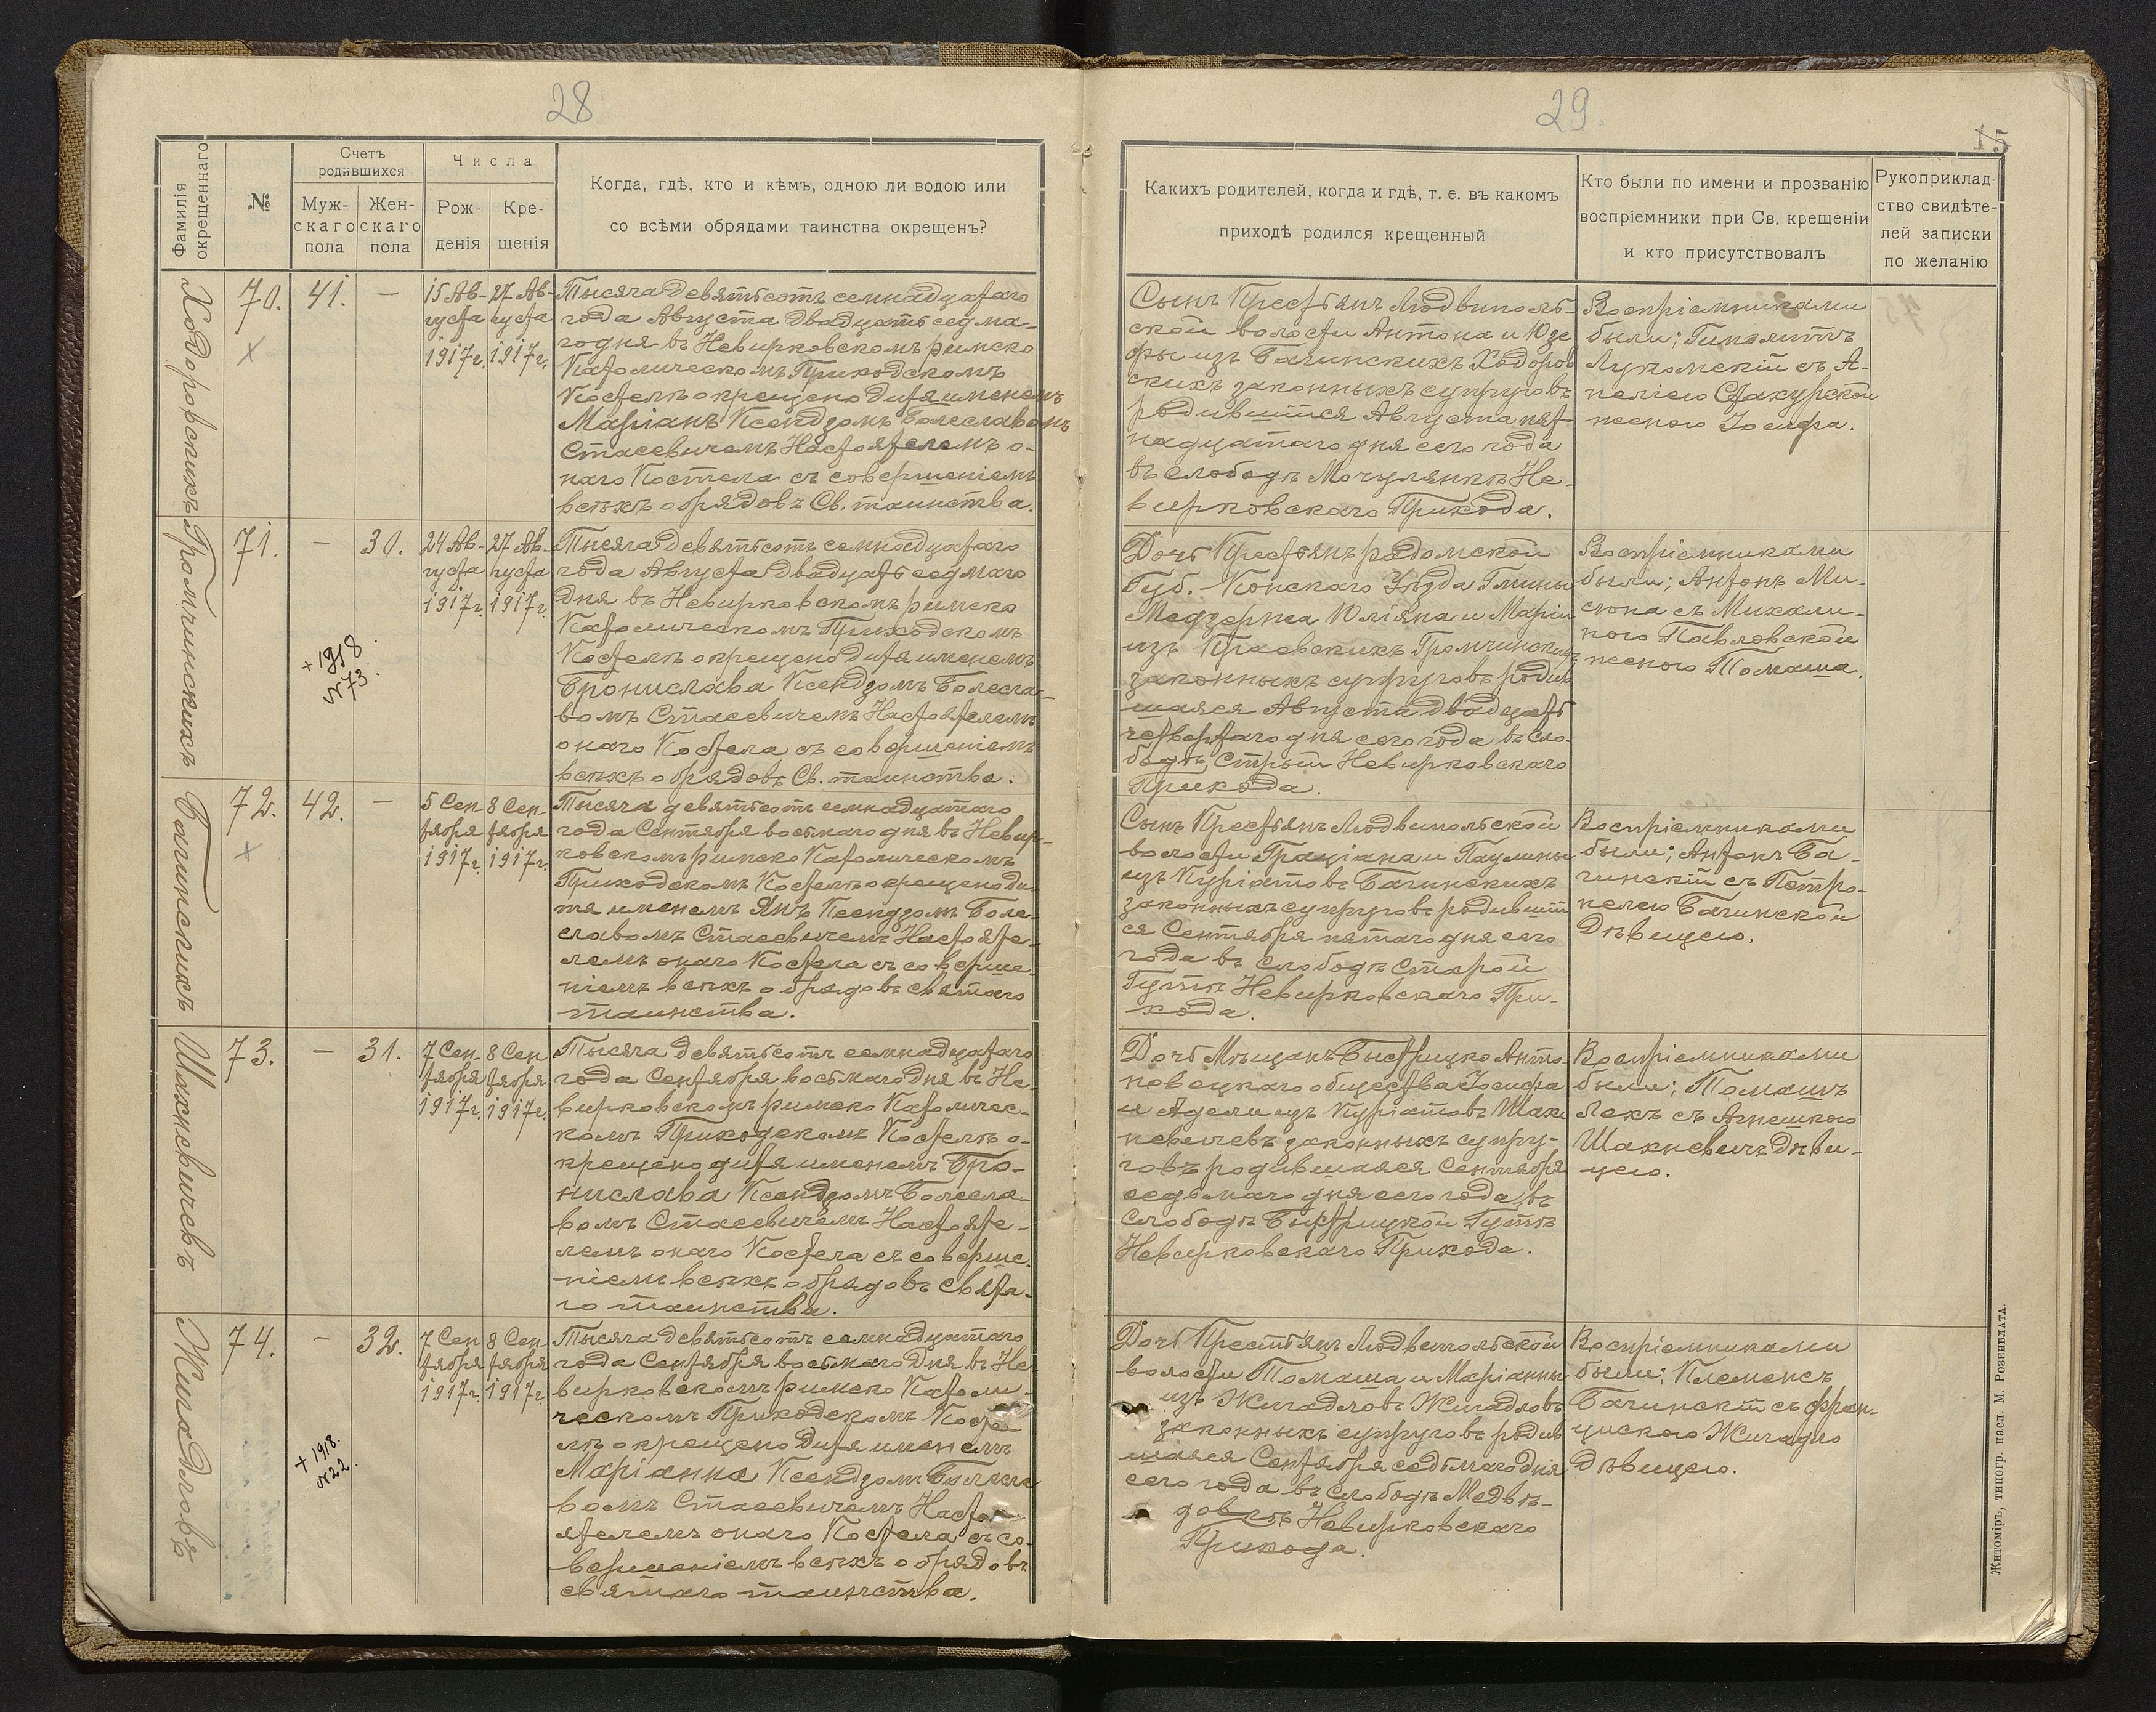 28
Фамилія окрещеннаго
№
Счетъ родившихся
Муж-
скаго
пола
Жен-
скаго
пола
Числа
Рож-
денія
Кре-
щенія
Когда, гдѣ, кто и кѣмъ, одною ли водою или
со всѣми обрядами таинства окрещенъ?
Ходоровскихъ
70.
41.
—
15 Ав-
густа
1917 г.
27 Ав-
густа
1917 г.
Тысяча девятьсотъ семнадцатаго
года Августа двадцать седма-
го дня въ Невирковскомъ римско
Католическомъ Приходскомъ
Костелѣ окрещено дитя именемъ
Маріанъ Ксендзомъ Болеславомъ
Стасевичемъ Настоятелемъ о-
наго Костела съ совершеніемъ
всѣхъ обрядовъ Св. таинства.
Громчинскихъ
71.
—
30.
24 Ав-
густа
1917 г.
27 Ав-
густа
1917 г.
+ 1918
N 73.
Тысяча девятьсотъ семнадцатаго
года Августа двадцать седмаго
дня въ Невирковскомъ римско
Католическомъ Приходскомъ
Костелѣ окрещено дитя именемъ
Бронислава Ксендзомъ Болесла-
вомъ Стасевичемъ Настоятелемъ
онаго Костела съ совершеніемъ
всѣхъ обрядовъ Св. таинства.
Багинскихъ
72.
42.
—
5 Сен-
тября
1917 г.
8 Сен
тября
1917 г.
Тысяча девятьсотъ семнадцатаго
года Сентября восьмаго дня въ Невир-
ковскомъ римско Католическомъ
Приходскомъ Костелѣ окрещено ди-
тя именемъ Янъ Ксендзомъ Боле-
славомъ Стасевичемъ Настояте-
лемъ онаго Костела съ соверше-
ніемъ всѣхъ обрядовъ святаго
таинства.
Шахневичевъ
73.
—
31.
7 Сен-
тября
1917 г.
8 Сен
тября
1917 г.
Тысяча девятьсотъ семнадцатаго
года Сентября восьмаго дня въ Не-
вирковскомъ римско Католичес-
комъ Приходскомъ Костелѣ о-
крещено дитя именемъ Бро-
нислава Ксендзомъ Болесла-
вомъ Стасевичемъ Настояте-
лемъ онаго Костела съ соверше-
ніемъ всѣхъ обрядовъ свята-
го таинства.
Жигадловъ
74.
—
32.
7 Сен
тября
1917 г.
8 Сен
тября
1917 г.
+ 1918.
N 22.
Тысяча девятьсотъ семнадцатаго
года Сентября восьмаго дня въ Не-
вирковскомъ римско Католи-
ческомъ Приходскомъ Косте
лѣ окрещено дитя именемъ
Маріанна Ксендзомъ Болесла
вомъ Стасевичемъ Насто
ятелемъ онаго Костела съ со-
вершеніемъ всѣхъ обрядовъ
святаго таинства.
29.
15
Какихъ родителей, когда и гдѣ, т. е. въ какомъ
приходѣ родился крещенный
Кто были по имени и прозванію
воспріемники при Св. крещеніи
и кто присутствовалъ
Рукоприклад-
ство свидѣте-
лей записки
по желанію
Сынъ Крестьянъ Людвиполь-
ской волости Антона и Юзе
фы изъ Багинскихъ Ходоров
скихъ законныхъ супруговъ
родившійся Августа пят-
надцатаго дня сего года
въ слободѣ Мочулянкѣ Не-
вирковскаго Прихода.
Воспріемниками
были; Гиполитъ
Лукомскій съ А-
неліею Стахурской
женою Іосифа.
Дочь Крестьянъ радомской
Губ. Конскаго Уѣзда Гмины
Медзержа Юліяна и Маріи
изъ Краевскихъ Громчинскихъ
законныхъ супруговъ родив
шаяся Августа двадцать
четвертаго дня сего года въ сло-
бодѣ Стрыи Невирковскаго
Прихода.
Воспріемниками
были; Антонъ Ми-
сюна съ Михали-
ною Павловской
женою Томаша.
Сынъ Крестьянъ Людвипольской
волости Граціана и Паулины
изъ Куріатовъ Багинскихъ
законныхъ супруговъ родившій
ся Сентября пятаго дня сего
года въ слободѣ Старой
Гутѣ Невирковскаго При-
хода.
Воспріемниками
были; Антонъ Ба-
гинскій съ Петро-
нелею Багинской
Дѣвицею.
Дочь Мѣщанъ Быстрицко Анто-
новецкаго общества Іосифа
и Адели изъ Куріатовъ Шах
невичевъ законныхъ супру-
говъ родившаяся Сентября
седьмаго дня сего года въ
слободѣ Быстрицкой Гутѣ
Невирковскаго Прихода.
Воспріемниками
были; Томашъ
Лехъ съ Агнешкою
Шахневичъ Дѣви-
цею.
Дочь Крестьянъ Людвипольской
волости Томаша и Маріанны
изъ Жигадловъ Жигадловъ
законныхъ супруговъ родив
шаяся Сентября седьмаго дня
сего года въ слободѣ Медвѣ-
довкѣ Невирковскаго
Прихода.
Воспріемниками
были; Клеменсъ
Багинскій съ Фран-
цискою Жигадло
Дѣвицею.
Житомiръ, типогр. насл. М. Розенблата.